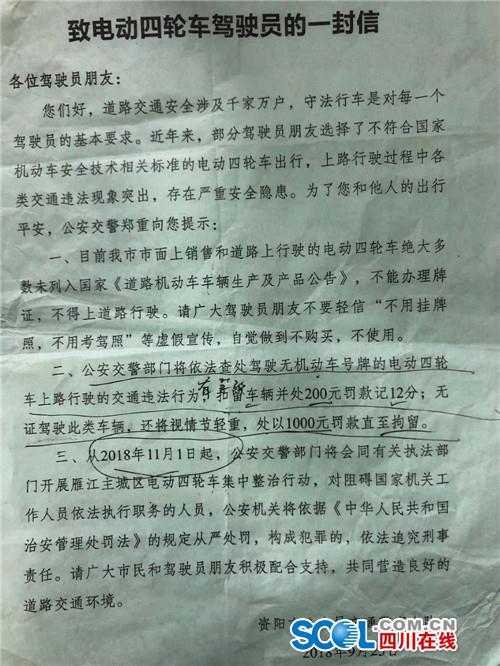 致电动四轮车驾驶员的一封信
各位驾驶员朋友：
您们好，道路交通安全涉及千家万户，守法行车是对每一个
驾驶员的基本要求。近年来，部分驾驶员朋友选择了不符合国家
机动车安全技术相关标准的电动四轮车出行，上路行驶过程中各
类交通违法现象突出，存在严重安全隐患。为了您和他人的出行
平安，公安交警郑重向您提示：
一、目前我市市面上销售和道路上行驶的电动四轮车绝大多
数未列入国家《道路机动车车辆生产及产品公告》，不能办理牌
证，不得上道路行驶。请广大驾驶员朋友不要轻信“不用挂牌
照，不用考驾照”等虚假宣传，自觉做到不购买，不使用。
二、公安交警部门将依法查处驾驶无机动车号牌的电动四轮
车上路行驶的交通违法行为，扣留车辆并处200元罚款记12分；无
证驾驶此类车辆，还将视情节轻重，处以1000元罚款直至拘留。
三、从2018年11月1日起，公安交警部门将会同有关执法部
门开展雁江主城区电动四轮车集中整治行动，对阻碍国家机关工
作人员依法执行职务的人员，公安机关将依据《中华人民共和国
治安管理处罚法》的规定从严处罚，构成犯罪的，依法追究刑事
责任。请广大市民和驾驶员朋友积极配合支持，共同营造良好的
道路交通环境。
资阳
2018年9月25日
SCOL.COM.CN
四川在线